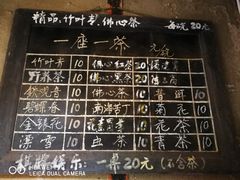 精品、竹叶青、佛心茶 每碗20元
一座一茶 元/碗
竹叶青 10 佛心红茶 10
野荞茶 10 佛心黑茶 10
铁观音 10 佛心茶 10 普洱 10
碧螺春 10 海南苦丁 10 菊花 10
金银花 10 花毛峰 10 花茶 10
漂雪 10 虫茶 10 青茶 10
棋牌娱乐：一桌20元（不含茶）
LEICA DUAL CAMERA